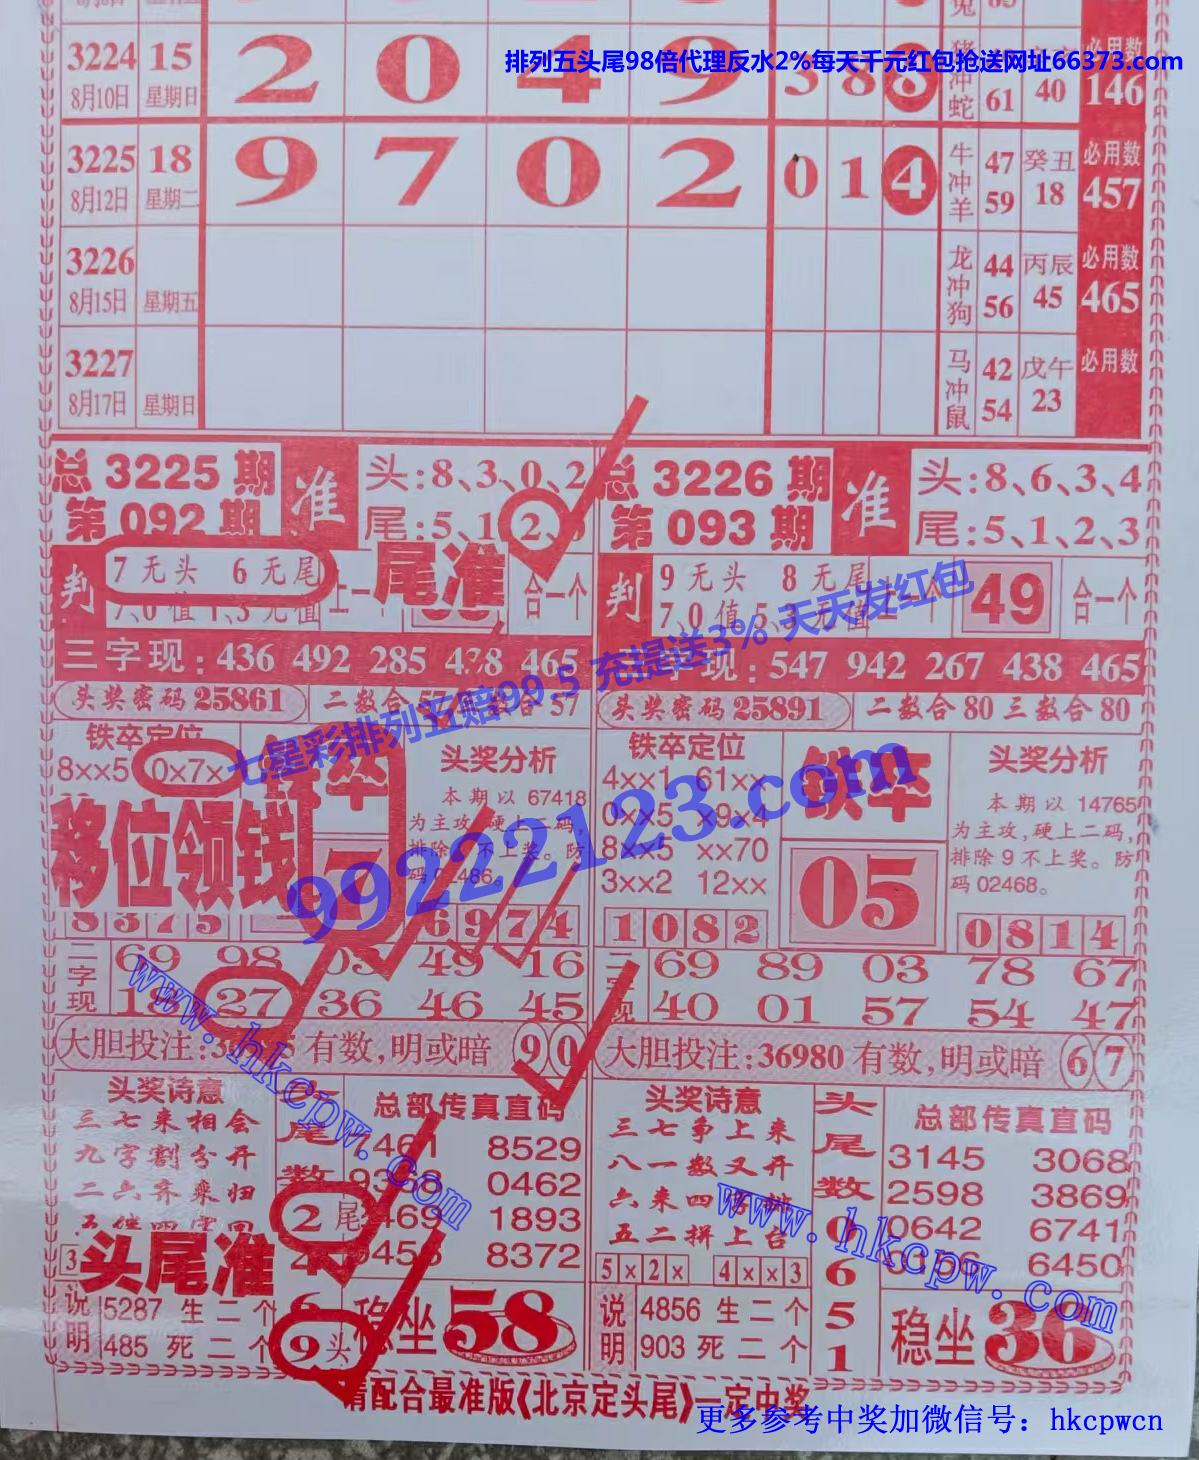 排列五头尾98倍代理反水2%每天千元红包抢送网址66373.com
3224 15 2 0 4 9 3 8 冲 61 40 146
8月10日 星期日 蛇
3225 18 9 7 0 2 0 1 4 牛冲羊 47 癸丑 必用数
8月12日 星期二 59 18 457
3226 龙冲狗 44 丙辰 必用数
8月15日 星期五 56 45 465
3227 马冲鼠 42 戊午 必用数
8月17日 星期日 54 23
总3225期 准 头:8、3、0、2
第092期 尾:5、1、2、
判 7无头 6无尾 尾准 合一个
7、0值1、3无值
三字现:436 492 285 438 465
头奖密码25861 二数合57 数合57
铁卒定位 头奖分析
8××5 0×7×
本期以67418
为主攻,硬上二码,
排除 不上奖。防
移位领钱
8375 6974
二字现 69 98 03 49 16
18 27 36 46 45
大胆投注: 有数,明或暗 9 0
头奖诗意 总部传真直码
三七来相会 7461 8529
九字割分开 0462
二六齐乘归 2尾 1893
头尾准 8372
说明 5287 生二个
485 死二个 9头
稳坐58
总3226期 准 头:8、6、3、4
第093期 尾:5、1、2、3
判 9无头 8无尾 49 合一个
7、0值5、3无值
现:547 942 267 438 465
头奖密码25891 二数合80 三数合80
铁卒定位 铁卒 头奖分析
4××1 61××
0××5 ×9×4
8××5 ××70
3××2 12××
05
本期以14765
为主攻,硬上二码,
排除9不上奖。防
码02468。
1082 0814
二字现 69 89 03 78 67
40 01 57 54 47
大胆投注:36980有数,明或暗 6 7
头奖诗意 头尾数 总部传真直码
三七争上来 3145 3068
八一数又开 2598 3869
0642 6741
五二拼上台 6450
5×2× 4××3 6
说明 4856 生二个 5
903 死二个 1
稳坐36
请配合最准版《北京定头尾》一定中奖
七星彩排列五赔99.5 充提送3% 天天发红包
99222123.com
www.hkcpw.com
www.hkcpw.com
更多参考中奖加微信号：hkcpwcn